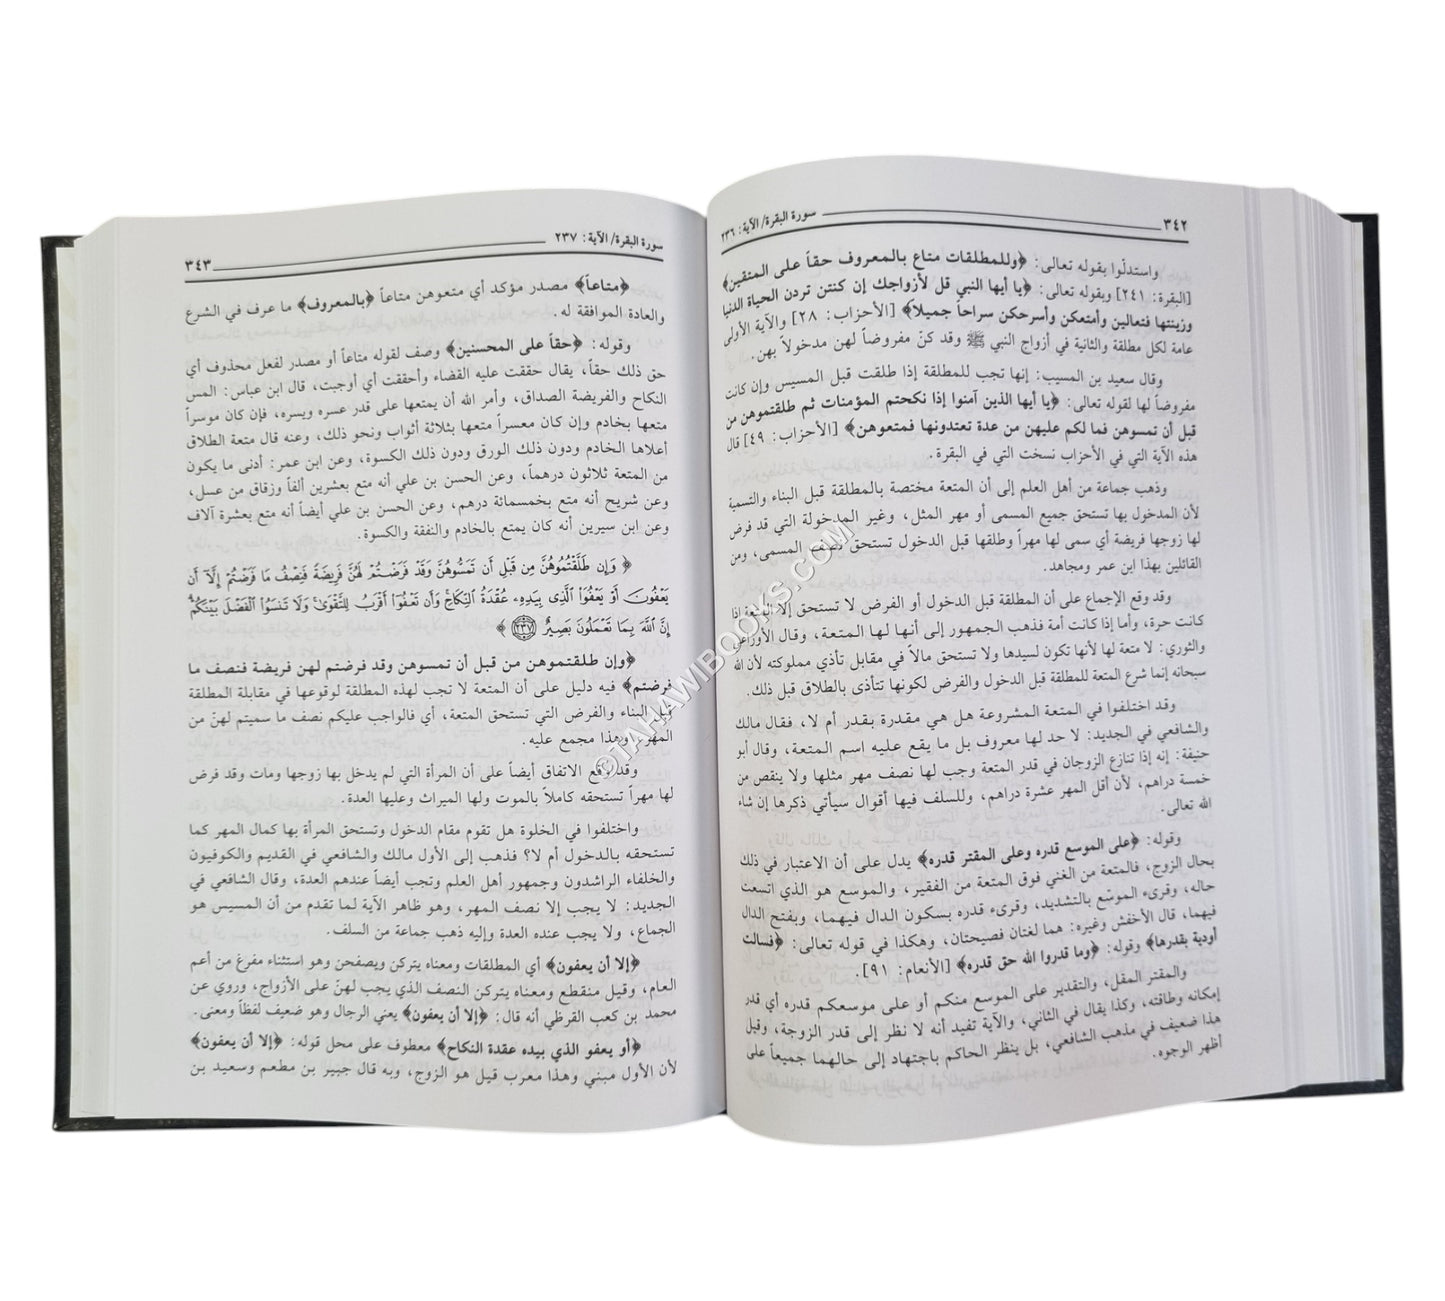 ٣٤٢ سورة البقرة/ الآية: ٢٣٦
واستدلّوا بقوله تعالى: ﴿وللمطلقات متاع بالمعروف حقاً على المتقين﴾
[البقرة: ٢٤١] وبقوله تعالى: ﴿يا أيها النبي قل لأزواجك إن كنتن تردن الحياة الدنيا
وزينتها فتعالين وأمتعكن وأسرحكن سراحاً جميلاً﴾ [الأحزاب: ٢٨] والآية الأولى
عامة لكل مطلقة والثانية في أزواج النبي ﷺ وقد كنّ مفروضاً لهن مدخولاً بهن.
وقال سعيد بن المسيب: إنها تجب للمطلقة إذا طلقت قبل المسيس وإن كانت
مفروضاً لها لقوله تعالى: ﴿يا أيها الذين آمنوا إذا نكحتم المؤمنات ثم طلقتموهن من
قبل أن تمسوهن فما لكم عليهن من عدة تعتدونها فمتعوهن﴾ [الأحزاب: ٤٩] قال
هذه الآية التي في الأحزاب نسخت التي في البقرة.
وذهب جماعة من أهل العلم إلى أن المتعة مختصة بالمطلقة قبل البناء والتسمية
لأن المدخول بها تستحق جميع المسمى أو مهر المثل، وغير المدخولة التي قد فرض
لها زوجها فريضة أي سمى لها مهراً وطلقها قبل الدخول تستحق نصف المسمى، ومن
القائلين بهذا ابن عمر ومجاهد.
وقد وقع الإجماع على أن المطلقة قبل الدخول أو الفرض لا تستحق إلا المتعة إذا
كانت حرة، وأما إذا كانت أمة فذهب الجمهور إلى أنها لها المتعة، وقال الأوزاعي
والثوري: لا متعة لها لأنها تكون لسيدها ولا تستحق مالاً في مقابل تأذي مملوكته لأن الله
سبحانه إنما شرع المتعة للمطلقة قبل الدخول والفرض لكونها تتأذى بالطلاق قبل ذلك.
وقد اختلفوا في المتعة المشروعة هل هي مقدرة بقدر أم لا، فقال مالك
والشافعي في الجديد: لا حد لها معروف بل ما يقع عليه اسم المتعة، وقال أبو
حنيفة: إنه إذا تنازع الزوجان في قدر المتعة وجب لها نصف مهر مثلها ولا ينقص من
خمسة دراهم، لأن أقل المهر عشرة دراهم، وللسلف فيها أقوال سيأتي ذكرها إن شاء
الله تعالى.
وقوله: ﴿على الموسع قدره وعلى المقتر قدره﴾ يدل على أن الاعتبار في ذلك
بحال الزوج، فالمتعة من الغني فوق المتعة من الفقير، والموسع هو الذي اتسعت
حاله، وقرىء الموسّع بالتشديد، وقرىء قدره بسكون الدال فيهما، وبفتح الدال
فيهما، قال الأخفش وغيره: هما لغتان فصيحتان، وهكذا في قوله تعالى: ﴿فسالت
أودية بقدرها﴾ وقوله: ﴿وما قدروا الله حق قدره﴾ [الأنعام: ٩١].
والمقتر المقل، والتقدير على الموسع منكم أو على موسعكم قدره أي قدر
إمكانه وطاقته، وكذا يقال في الثاني، والآية تفيد أنه لا نظر إلى قدر الزوجة، وقيل
هذا ضعيف في مذهب الشافعي، بل ينظر الحاكم باجتهاد إلى حالهما جميعاً على
أظهر الوجوه.
سورة البقرة/ الآية: ٢٣٧ ٣٤٣
﴿متاعاً﴾ مصدر مؤكد أي متعوهن متاعاً ﴿بالمعروف﴾ ما عرف في الشرع
والعادة الموافقة له.
وقوله: ﴿حقاً على المحسنين﴾ وصف لقوله متاعاً أو مصدر لفعل محذوف أي
حق ذلك حقاً، يقال حققت عليه القضاء وأحققت أي أوجبت، قال ابن عباس: المس
النكاح والفريضة الصداق، وأمر الله أن يمتعها على قدر عسره ويسره، فإن كان موسراً
متعها بخادم وإن كان معسراً متعها بثلاثة أثواب ونحو ذلك، وعنه قال متعة الطلاق
أعلاها الخادم ودون ذلك الورق ودون ذلك الكسوة، وعن ابن عمر: أدنى ما يكون
من المتعة ثلاثون درهماً، وعن الحسن بن علي أنه متع بعشرين ألفاً وزقاق من عسل،
وعن شريح أنه متع بخمسمائة درهم، وعن الحسن بن علي أيضاً أنه متع بعشرة آلاف
وعن ابن سيرين أنه كان يمتع بالخادم والنفقة والكسوة.
﴿ وَإِن طَلَّقْتُمُوهُنَّ مِن قَبْلِ أَن تَمَسُّوهُنَّ وَقَدْ فَرَضْتُمْ لَهُنَّ فَرِيضَةً فَنِصْفُ مَا فَرَضْتُمْ إِلَّا أَن
يَعْفُونَ أَوْ يَعْفُوَا الَّذِي بِيَدِهِ عُقْدَةُ النِّكَاحِ وَأَن تَعْفُوا أَقْرَبُ لِلتَّقْوَى وَلَا تَنسَوُا الْفَضْلَ بَيْنَكُمْ
إِنَّ اللَّهَ بِمَا تَعْمَلُونَ بَصِيرٌ ٢٣٧ ﴾
﴿وإن طلقتموهن من قبل أن تمسوهن وقد فرضتم لهن فريضة فنصف ما
فرضتم﴾ فيه دليل على أن المتعة لا تجب لهذه المطلقة لوقوعها في مقابلة المطلقة
قبل البناء والفرض التي تستحق المتعة، أي فالواجب عليكم نصف ما سميتم لهنّ من
المهر، وهذا مجمع عليه.
وقد وقع الاتفاق أيضاً على أن المرأة التي لم يدخل بها زوجها ومات وقد فرض
لها مهراً تستحقه كاملاً بالموت ولها الميراث وعليها العدة.
واختلفوا في الخلوة هل تقوم مقام الدخول وتستحق المرأة بها كمال المهر كما
تستحقه بالدخول أم لا؟ فذهب إلى الأول مالك والشافعي في القديم والكوفيون
والخلفاء الراشدون وجمهور أهل العلم وتجب أيضاً عندهم العدة، وقال الشافعي في
الجديد: لا يجب إلا نصف المهر، وهو ظاهر الآية لما تقدم من أن المسيس هو
الجماع، ولا يجب عنده العدة وإليه ذهب جماعة من السلف.
﴿إلا أن يعفون﴾ أي المطلقات ومعناه يتركن ويصفحن وهو استثناء مفرغ من أعم
العام، وقيل منقطع ومعناه يتركن النصف الذي يجب لهنّ على الأزواج، وروي عن
محمد بن كعب القرظي أنه قال: ﴿إلا أن يعفون﴾ يعني الرجال وهو ضعيف لفظاً ومعنى.
﴿أو يعفو الذي بيده عقدة النكاح﴾ معطوف على محل قوله: ﴿إلا أن يعفون﴾
لأن الأول مبني وهذا معرب قيل هو الزوج، وبه قال جبير بن مطعم وسعيد بن
©TAHAWIBOOKS.COM